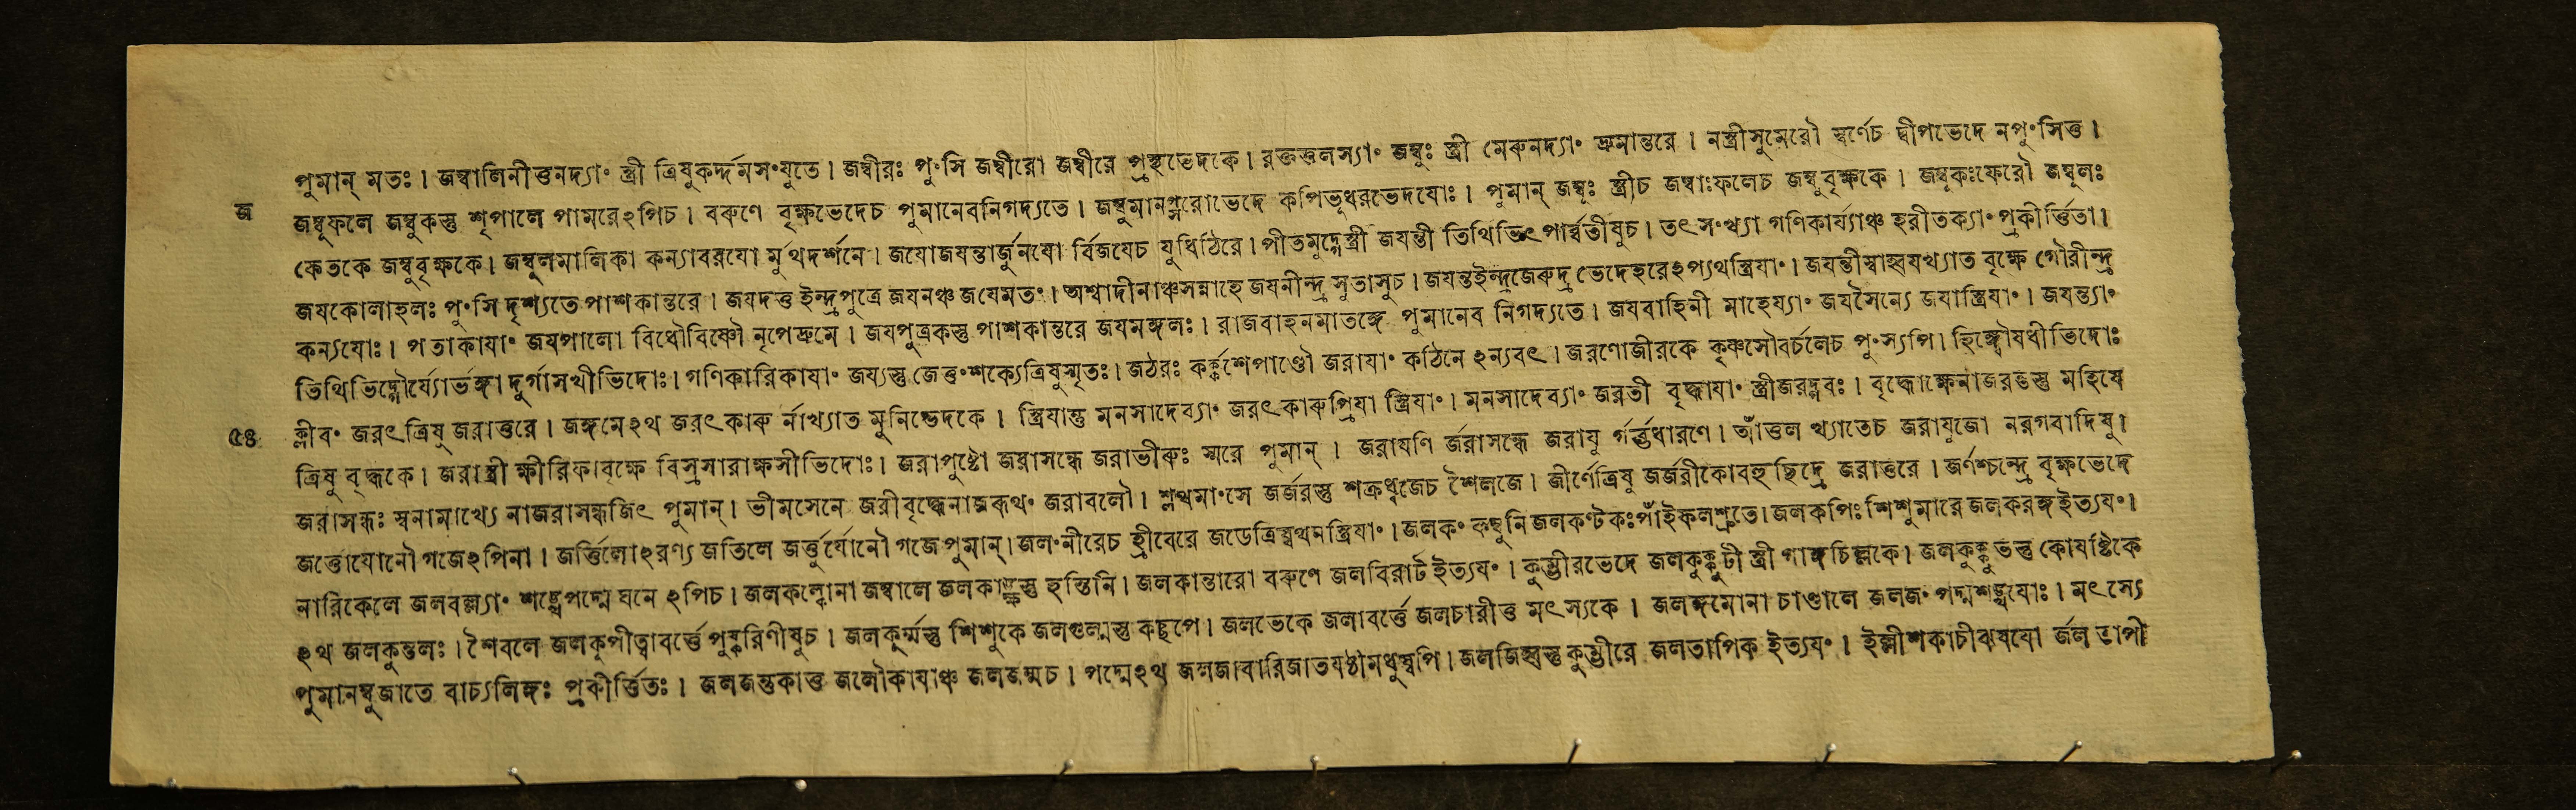 পুমান্ মতঃ। জম্বালিনীত্তনদ্যাং স্ত্রী ত্রিষুকর্দ্দমসংযুতে। জম্বীরঃ পুংসি জম্বীরো জম্বীরে প্রস্থভেদকে। রক্ততুলস্যাং জম্বুঃ স্ত্রী মেরুনদ্যাং দ্রুমান্তরে। নস্ত্রীসুমেরৌ স্বর্ণেচ দ্বীপভেদে নপুংসিত্ত।
জ জম্বুফলে জম্বুকস্তু শৃপালে পামরেঽপিচ। বরুণে বৃক্ষভেদেচ পুমানেবনিগদ্যতে। কপিভূধরভেদযোঃ। পুমান্ জম্বূঃ স্ত্রীচ জম্বাঃফলেচ জম্বুবৃক্ষকে। জম্বূকঃফেরৌ জম্বূলঃ
কেতকে জম্বুবৃক্ষকে। জম্বুলমালিকা কন্যাবরযো র্মুখদর্শনে। জযোজযন্তার্জুনযো র্বিজযেচ যুধিষ্ঠিরে। পীতমুদ্গেস্ত্রী জযন্তী তিথিভিৎপার্ব্বতীষুচ। তৎসংখ্যা গণিকার্য্যাঞ্চ হরীতক্যাং প্রকীর্ত্তিতা।
জযকোলাহলঃ পুংসি দৃশ্যতে পাশকান্তরে। জযদত্ত ইন্দ্রপুত্রে জযনঞ্চ জযেমতং। অশ্বাদীনাঞ্চসন্নাহে জযনীন্দ্র সুতাসুচ। জযন্তইন্দ্রজেরুদ্র ভেদেহরেঽপ্যথস্ত্রিযাং। বৃক্ষে গৌরীন্দ্র
কন্যযোঃ। পতাকাযাং জযপালো বিধৌবিষ্ণৌ নৃপেদ্রুমে। জযপুত্রকস্তু পাশকান্তরে জযমঙ্গলঃ। রাজবাহনমাতঙ্গে পুমানেব নিগদ্যতে। জযবাহিনী মাহেয্যাং জযসৈন্যে জযাস্ত্রিযাং। জযন্ত্যাং
তিথিভিদ্গৌর্য্যোর্ভঙ্গা দুর্গাসখীভিদোঃ। গণিকারিকাযাং জয্যস্তু জেত্তুংশক্যেত্রিষুস্মৃতঃ। জঠরঃ কর্ক্কশেপাণ্ডৌ জরাযাং কঠিনে ঽন্যবৎ। জরণোজীরকে কৃষ্ণসৌবর্চলেচ পুংস্যপি। হিঙ্গ্বৌষধীভিদোঃ
৫৪ ক্লীবং জরৎত্রিষু জরাত্তরে। জঙ্গমেঽথ জরৎকারু র্নাখ্যাত মুনিভেদকে। স্ত্রিযান্তু মনসাদেব্যাং জরৎকারুপ্রিযা স্ত্রিযাং। মনসাদেব্যাং জরতী বৃদ্ধাযাং স্ত্রীজরদ্গবঃ। বৃদ্ধোক্ষেনাজরত্তস্তু মহিষে
ত্রিষু বৃদ্ধকে। জরাস্ত্রী ক্ষীরিফাবৃক্ষে বিস্রসারাক্ষসীভিদোঃ। জরাপুষ্টো জরাসন্ধে জরাভীরুঃ স্মরে পুমান্। জরাযণি র্জরাসন্ধে জরাযু র্গর্ত্তধারণে। আঁত্তল খ্যাতেচ জরাযুজো নরগবাদিষু।
জরাসন্ধঃ স্বনামাখ্যে নাজরাসন্ধজিৎ পুমান্। ভীমসেনে জরীবৃদ্ধেনাজরূথং জরাবলৌ। শ্লথমাংসে জর্জরস্তু শক্রধ্বজেচ শৈলজে। জীর্ণেত্রিষু জর্জরীকোবহুছিদ্রে জরাত্তরে। জর্ণশ্চন্দ্রে বৃক্ষভেদে
জর্ত্তোযোনৌ গজেঽপিনা। জর্ত্তিলোঽরণ্য জতিলে জর্ত্তুর্যোনৌ গজে পুমান্। জলংনীরেচ হ্রীবেরে জডেত্রিষ্বথনস্ত্রিযাং। জলকং কম্বুনি জলকণ্টকঃপাঁইফলশ্রুতে। জলকপিঃ শিশুমারে জলকরঙ্গইত্যযং।
নারিকেলে জলবল্ল্যাং শঙ্খেপদ্মে ঘনে ঽপিচ। জলকল্কোনা জম্বালে জলকাঙ্ক্ষস্তু হস্তিনি। জলকান্তারো বরুণে জলবিরার্ট ইত্যযং। কুম্ভীরভেদে জলকুক্কুটী স্ত্রী গাঙ্গচিল্লকে। জলকুক্কুভস্তু কোযষ্টিকে
ঽথ জলকুন্তলঃ। শৈবলে জলকূপীত্বাবর্ত্তে পুষ্করিণীষুচ। জলকূর্ম্মস্তু শিশুকে জলগুল্মস্তু কচ্ছপে। জলভেকে জলাবর্ত্তে জলচারীত্ত মৎস্যকে। জলঙ্গমোনা চাণ্ডালে জলজং পদ্মশঙ্খযোঃ। মৎস্যে
পুমানম্বুজাতে বাচ্যলিঙ্গঃ প্রকীর্ত্তিতঃ। জলজন্তুকাত্ত জলৌকাযাঞ্চ জলজন্মচ। পদ্মেঽথ জলজিহ্বস্তু কুম্ভীরে জলতাপিক ইত্যযং। ইল্লীশকাচীঝষযো র্জল তাপী